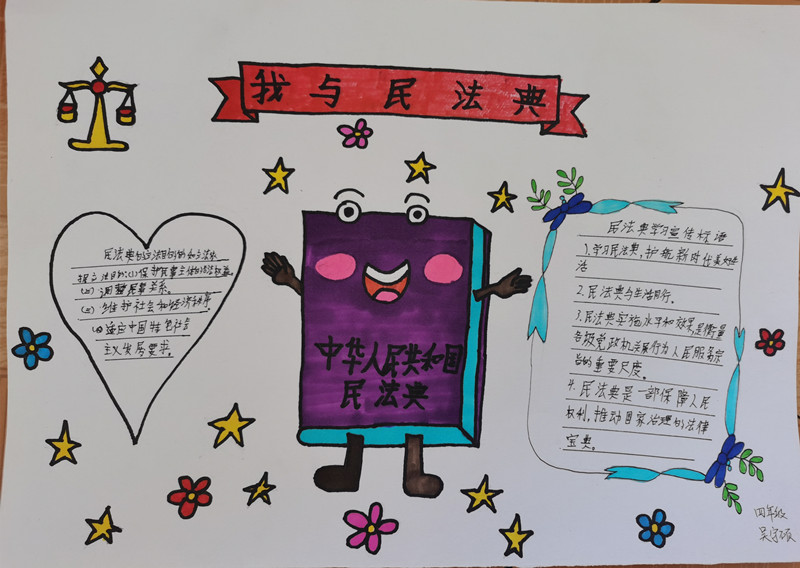 我与民法典
民法典的立法目的和立法依
据立法目的(1)保护民事主体的合法权益
(2)调整民事关系。
(3)维护社会和经济秩序
(4)适应中国特色社会
主义发展要求。
中华人民共和国
民法典
民法典学习宣传标语
1.学习民法典,护航新时代美好生
活
2.民法典与生活同行。
3.民法典实施水平和效果,是衡量
各级党政机关履行为人民服务宗
旨的重要尺度。
4.民法典是一部保障人民
权利,推动国家治理的法律
宝典。
四年级
吴